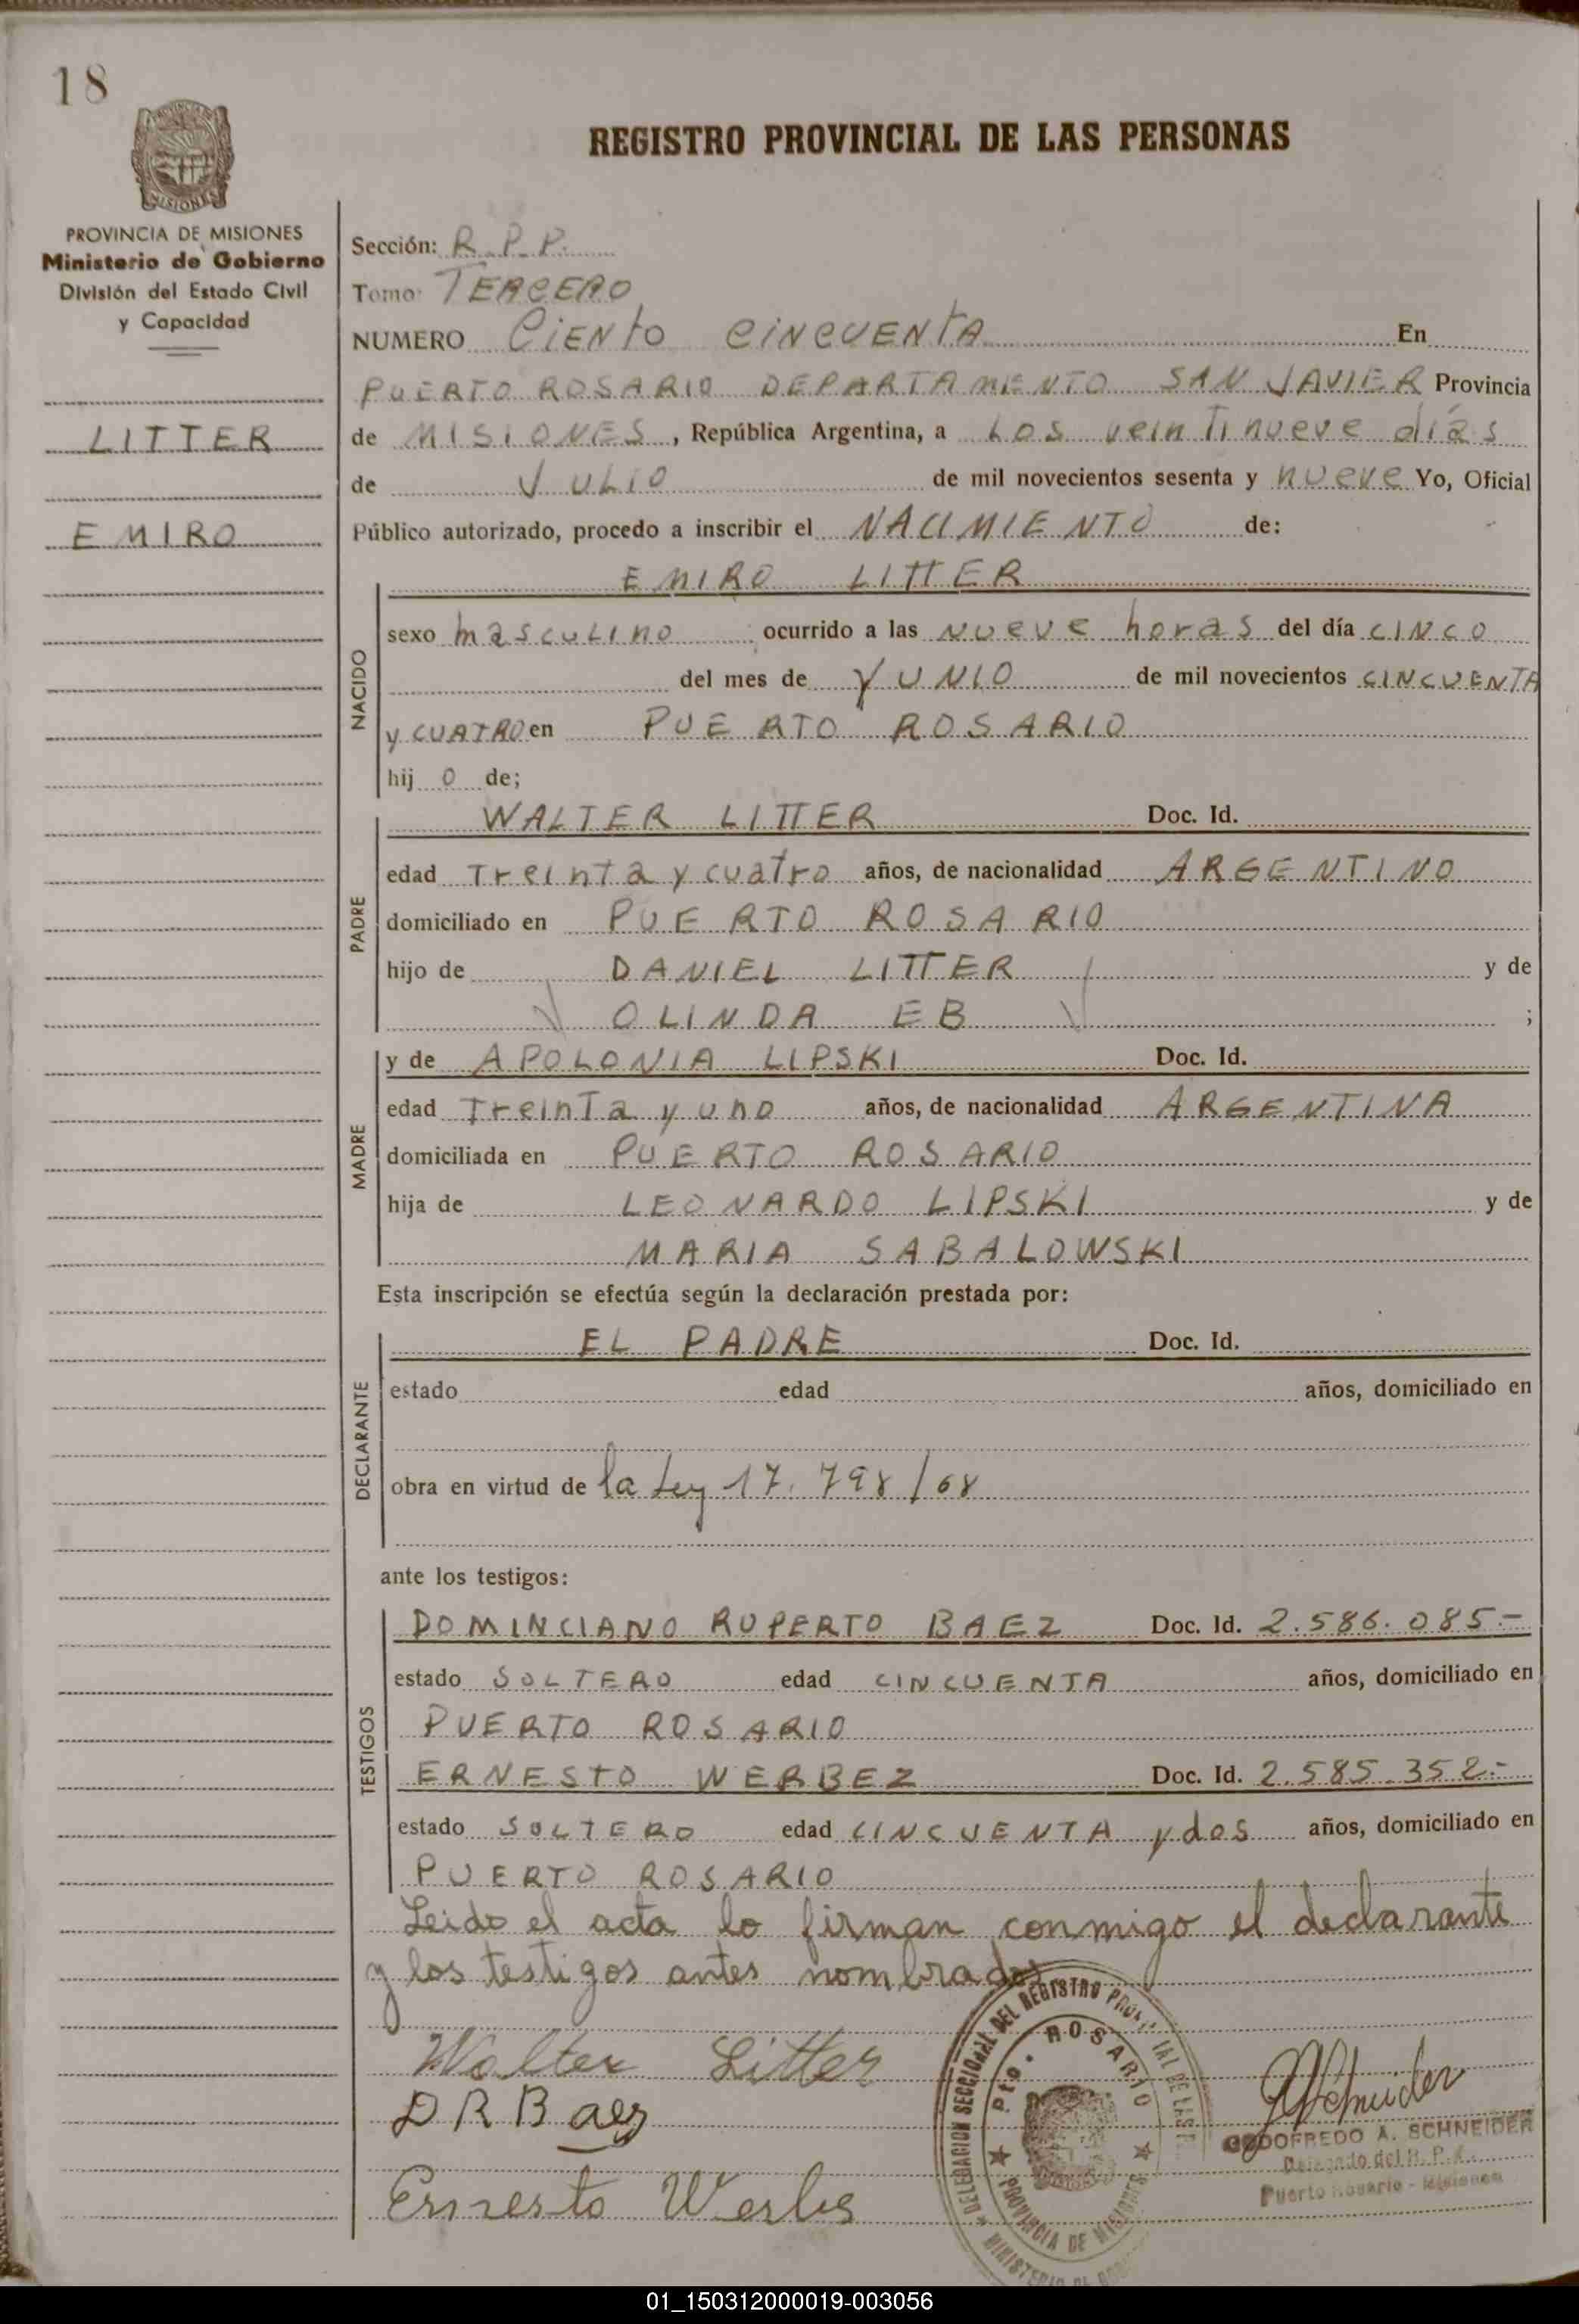 18
REGISTRO PROVINCIAL DE LAS PERSONAS
MISIONES
PROVINCIA DE MISIONES
Ministerio de Gobierno
División del Estado Civil
y Capacidad
LITTER
EMIRO
Sección: R.P.P.
Tomo: TERCERO
NUMERO Ciento CINCUENTA En
PUERTO ROSARIO DEPARTAMENTO SAN JAVIER Provincia
de MISIONES, República Argentina, a Los veintinueve días
de JULIO de mil novecientos sesenta y nueve Yo, Oficial
Público autorizado, procedo a inscribir el NACIMIENTO de:
EMIRO LITTER
NACIDO
sexo masculino ocurrido a las nueve horas del día CINCO
del mes de YUNIO de mil novecientos CINCUENTA
y CUATRO en PUERTO ROSARIO
hij o de;
PADRE
WALTER LITTER Doc. Id.
edad Treinta y cuatro años, de nacionalidad ARGENTINO
domiciliado en PUERTO ROSARIO
hijo de DANIEL LITTER y de
OLINDA EB ;
MADRE
y de APOLONIA LIPSKI Doc. Id.
edad Treinta y uno años, de nacionalidad ARGENTINA
domiciliada en PUERTO ROSARIO
hija de LEONARDO LIPSKI y de
MARIA SABALOWSKI
Esta inscripción se efectúa según la declaración prestada por:
DECLARANTE
EL PADRE Doc. Id.
estado edad años, domiciliado en
obra en virtud de la Ley 17.798/68
ante los testigos:
TESTIGOS
DOMINCIANO RUPERTO BAEZ Doc. Id. 2.586.085.-
estado SOLTERO edad CINCUENTA años, domiciliado en
PUERTO ROSARIO
ERNESTO WERBEZ Doc. Id. 2.585.352.-
estado SOLTERO edad CINCUENTA y dos años, domiciliado en
PUERTO ROSARIO
Leido el acta lo firman conmigo el declarante
y los testigos antes nombrados
Walter Litter
D R Baez
Ernesto Werbe
DELEGACION SECCIONAL DEL REGISTRO
Pto. ROSARIO
PROVINCIA DE MISIONES
Schneider
GODOFREDO A. SCHNEIDER
Delegado del R. P. P.
Puerto Rosario - Misiones
01_150312000019-003056